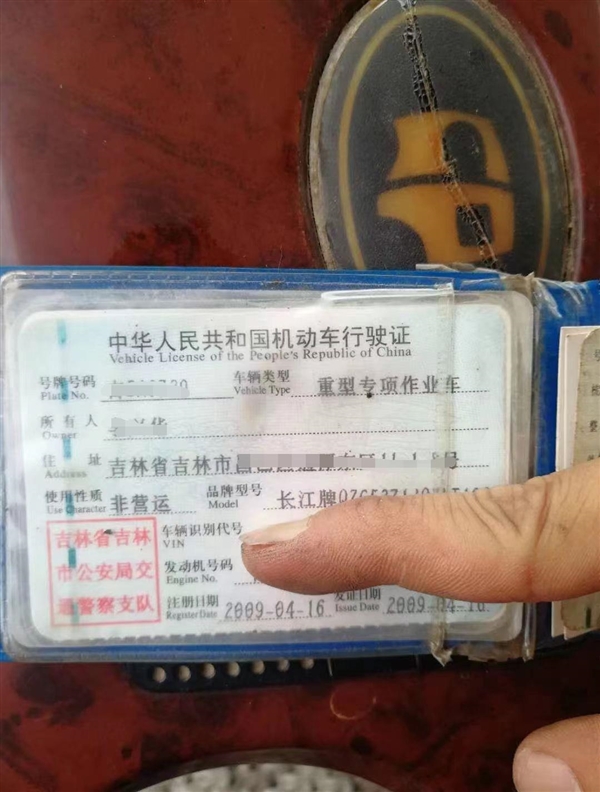 中华人民共和国机动车行驶证
Vehicle License of the People's Republic of China
号牌号码 车辆类型 重型专项作业车
Plate No. Vehicle Type
所有人 华
Owner
住址 吉林省吉林市
Address
使用性质 非营运 品牌型号 长江牌QZC5271
Use Character Model
吉林省吉林 车辆识别代号
VIN
市公安局交 发动机号码
Engine No.
通警察支队 注册日期 2009-04-16 发证日期 2009-04-16
Register Date Issue Date